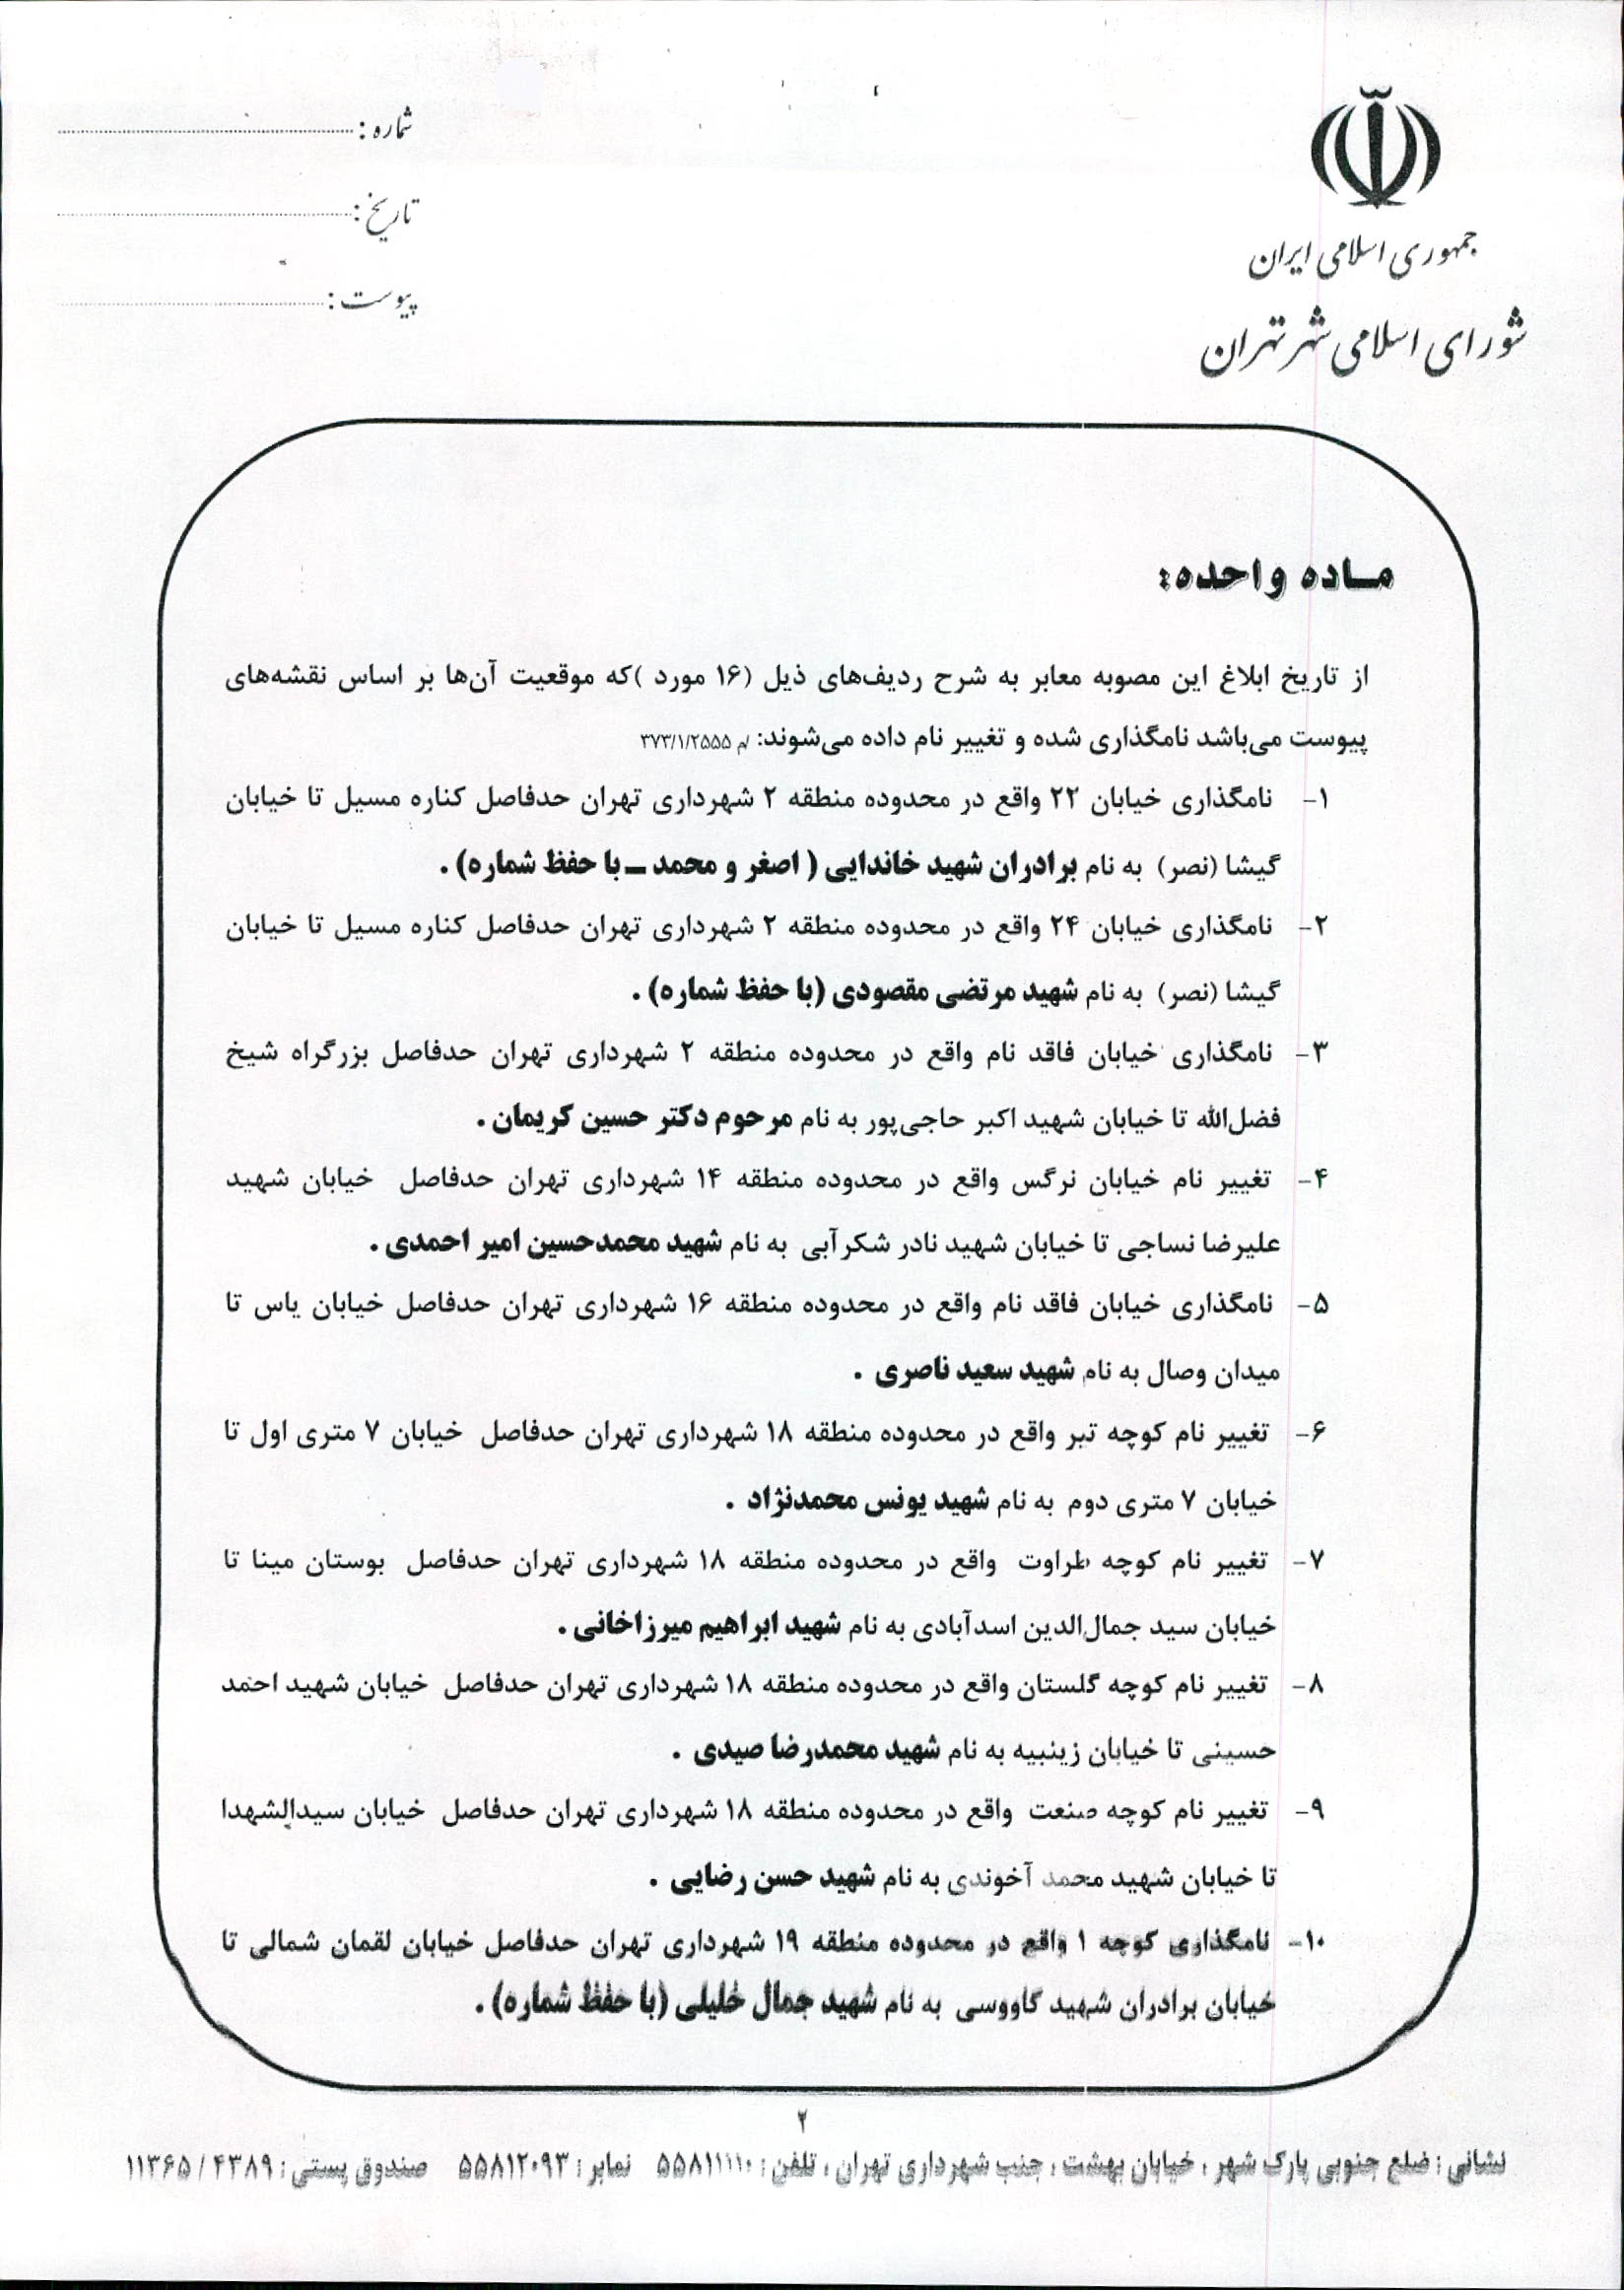 جمهوری اسلامی ایران
شورای اسلامی شهر تهران
شماره :
تاریخ :
پیوست :
ماده واحده:
از تاریخ ابلاغ این مصوبه معابر به شرح ردیف‌های ذیل (۱۶ مورد )که موقعیت آن‌ها بر اساس نقشه‌های
پیوست می‌باشد نامگذاری شده و تغییر نام داده می‌شوند: ۳۷۳/۱/۲۵۵۵
۱- نامگذاری خیابان ۲۲ واقع در محدوده منطقه ۲ شهرداری تهران حدفاصل کناره مسیل تا خیابان
گیشا (نصر) به نام برادران شهید خاندایی ( اصغر و محمد – با حفظ شماره) .
۲- نامگذاری خیابان ۲۴ واقع در محدوده منطقه ۲ شهرداری تهران حدفاصل کناره مسیل تا خیابان
گیشا (نصر) به نام شهید مرتضی مقصودی (با حفظ شماره) .
۳- نامگذاری خیابان فاقد نام واقع در محدوده منطقه ۲ شهرداری تهران حدفاصل بزرگراه شیخ
فضل‌الله تا خیابان شهید اکبر حاجی‌پور به نام مرحوم دکتر حسین کریمان .
۴- تغییر نام خیابان نرگس واقع در محدوده منطقه ۱۴ شهرداری تهران حدفاصل خیابان شهید
علیرضا نساجی تا خیابان شهید نادر شکرآبی به نام شهید محمدحسین امیر احمدی .
۵- نامگذاری خیابان فاقد نام واقع در محدوده منطقه ۱۶ شهرداری تهران حدفاصل خیابان یاس تا
میدان وصال به نام شهید سعید ناصری .
۶- تغییر نام کوچه تبر واقع در محدوده منطقه ۱۸ شهرداری تهران حدفاصل خیابان ۷ متری اول تا
خیابان ۷ متری دوم به نام شهید یونس محمدنژاد .
۷- تغییر نام کوچه طراوت واقع در محدوده منطقه ۱۸ شهرداری تهران حدفاصل بوستان مینا تا
خیابان سید جمال‌الدین اسدآبادی به نام شهید ابراهیم میرزاخانی .
۸- تغییر نام کوچه گلستان واقع در محدوده منطقه ۱۸ شهرداری تهران حدفاصل خیابان شهید احمد
حسینی تا خیابان زینبیه به نام شهید محمدرضا صیدی .
۹- تغییر نام کوچه صنعت واقع در محدوده منطقه ۱۸ شهرداری تهران حدفاصل خیابان سیدالشهدا
تا خیابان شهید محمد آخوندی به نام شهید حسن رضایی .
۱۰- نامگذاری کوچه ۱ واقع در محدوده منطقه ۱۹ شهرداری تهران حدفاصل خیابان لقمان شمالی تا
خیابان برادران شهید کاووسی به نام شهید جمال خلیلی (با حفظ شماره) .
۲
نشانی : ضلع جنوبی پارک شهر ، خیابان بهشت ، جنب شهرداری تهران ، تلفن : ۵۵۸۱۱۱۱۰ نمابر : ۵۵۸۱۲۰۹۳ صندوق پستی : ۴۳۸۹ / ۱۱۳۶۵